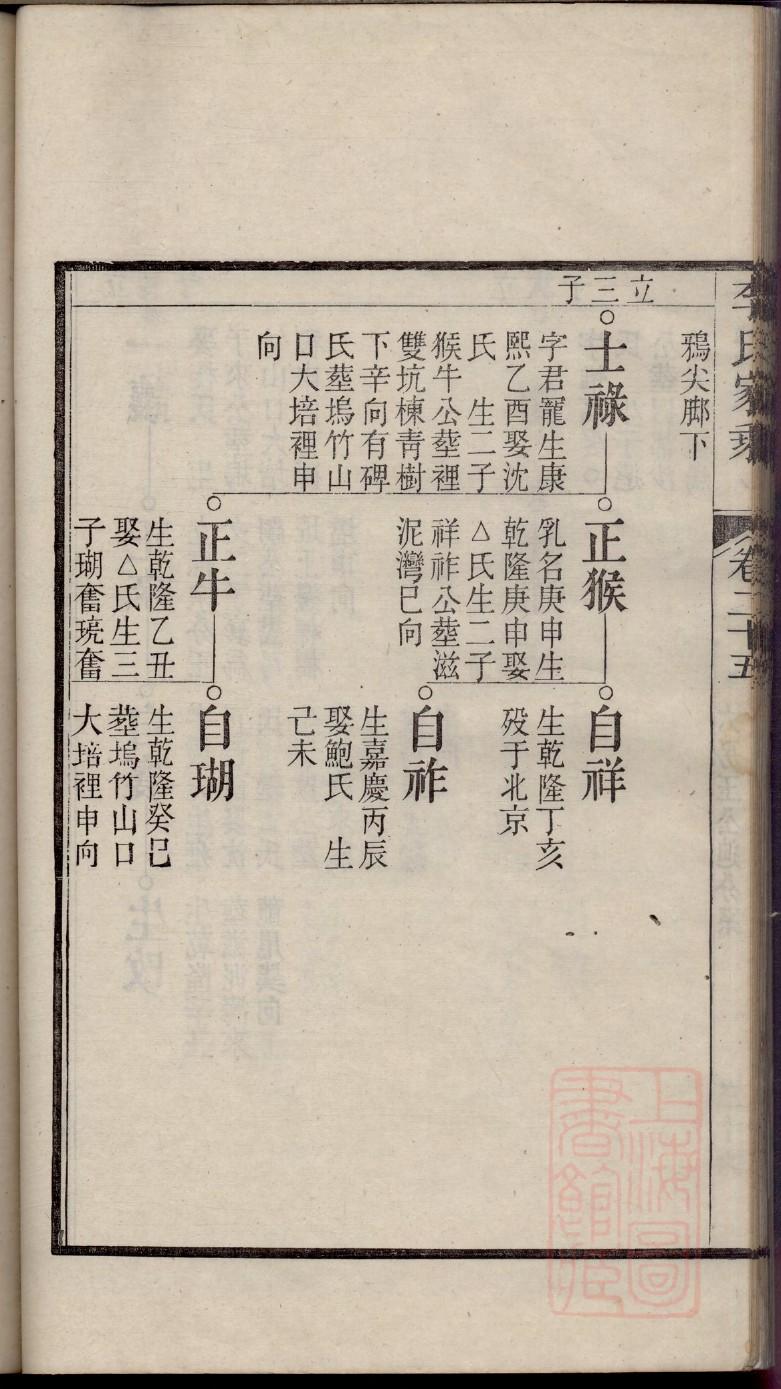 李氏家乘
卷二十五
立三子
鴉尖脚下
士祿
字君寵生康
熙乙酉娶沈
氏　生二子
猴牛公塟裡
雙坑棟青樹
下辛向有碑
氏塟塢竹山
口大培裡申
向
正猴
乳名庚申生
乾隆庚申娶
△氏生二子
祥祚公塟滋
泥灣巳向
正牛
生乾隆乙丑
娶△氏生三
子瑚奮琉奮
自祥
生乾隆丁亥
歿于北京
自祚
生嘉慶丙辰
娶鮑氏　生
己未
自瑚
生乾隆癸巳
塟塢竹山口
大培裡申向
上海圖書館藏